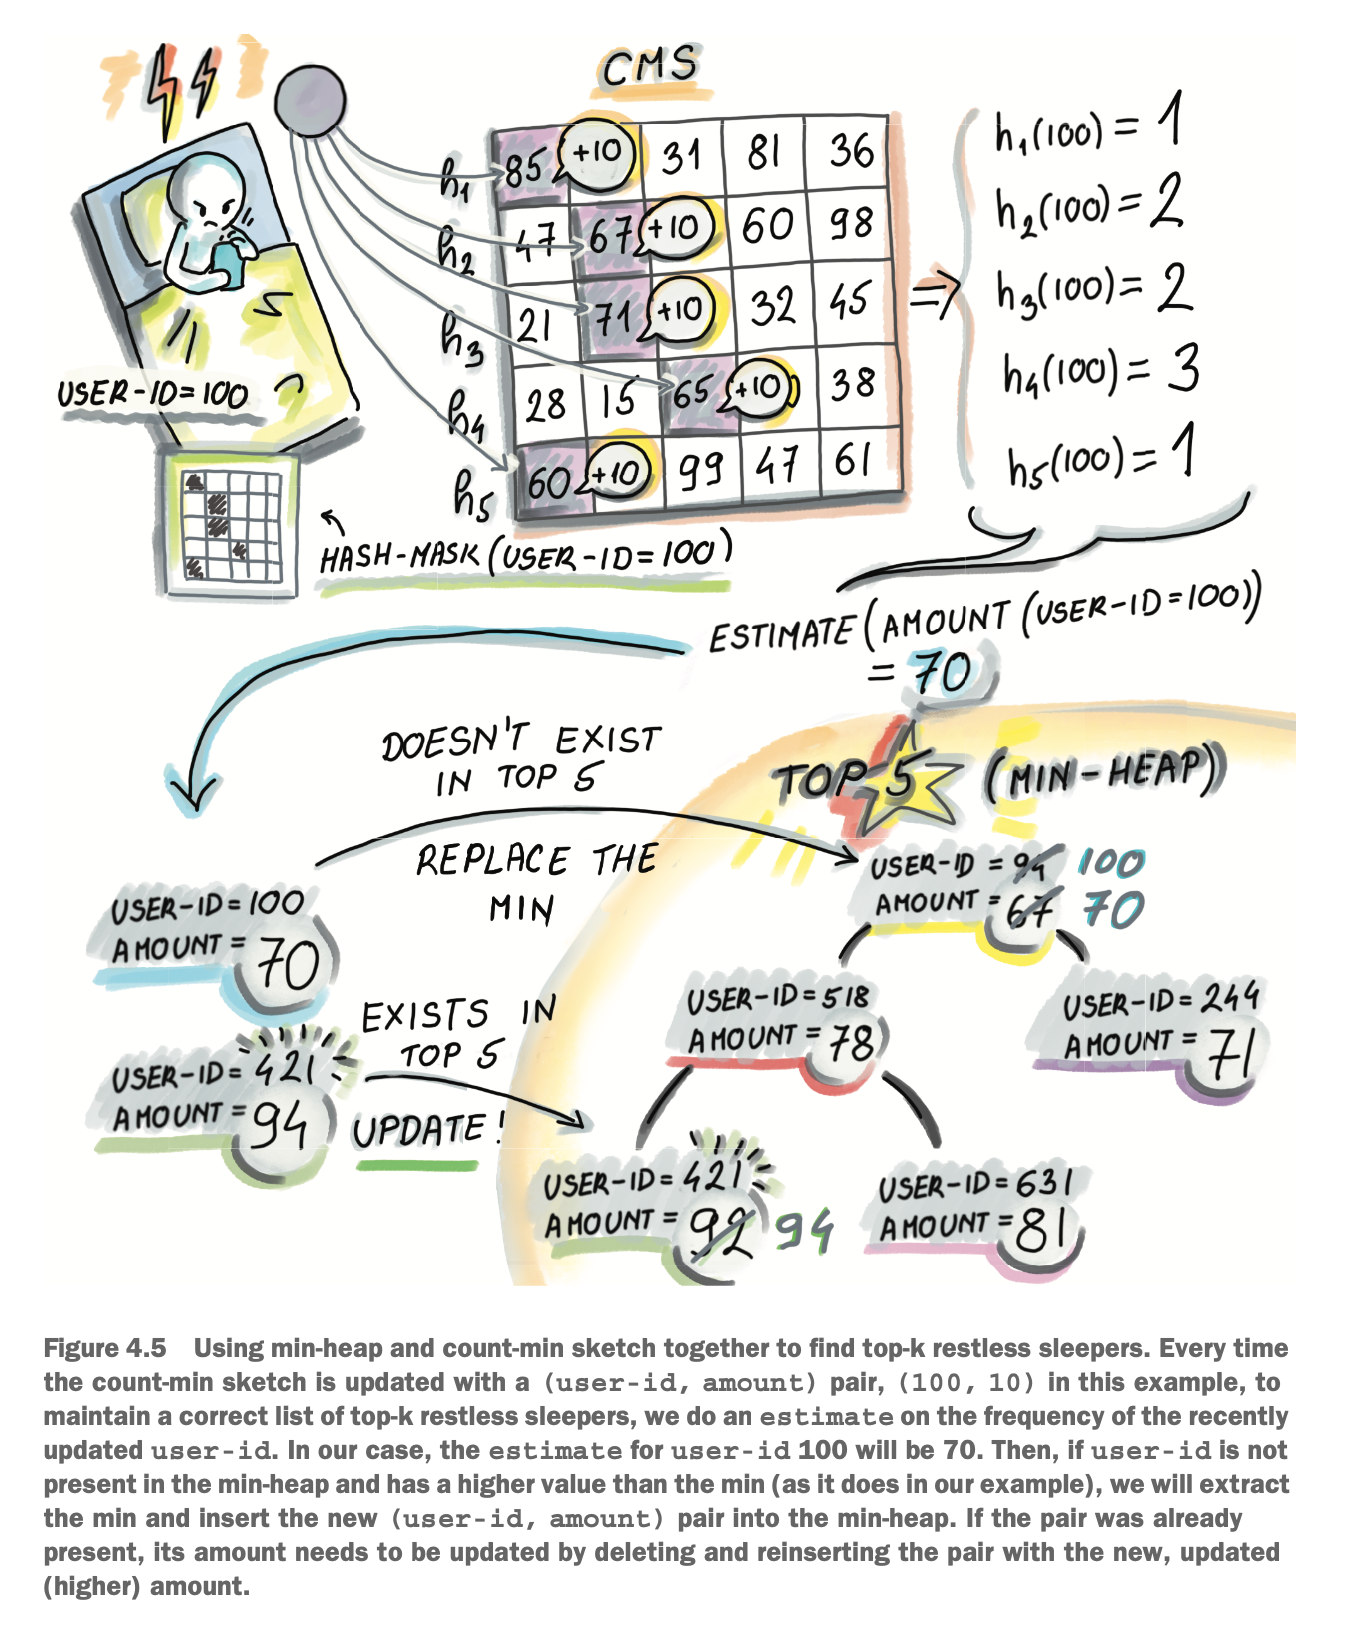 CMS
h1 85 +10 31 81 36
h2 47 67 +10 60 98
h3 21 71 +10 32 45
h4 28 15 65 +10 38
h5 60 +10 99 47 61
⇒
h1(100) = 1
h2(100) = 2
h3(100) = 2
h4(100) = 3
h5(100) = 1
USER-ID=100
HASH-MASK (USER-ID=100)
ESTIMATE (AMOUNT (USER-ID=100))
= 70
DOESN'T EXIST
IN TOP 5
REPLACE THE
MIN
TOP 5 (MIN-HEAP)
USER-ID = 94 100
AMOUNT = 67 70
USER-ID=100
AMOUNT = 70
USER-ID=518
AMOUNT = 78
USER-ID= 244
AMOUNT = 71
EXISTS IN
TOP 5
UPDATE!
USER-ID= 421
AMOUNT = 94
USER-ID= 421
AMOUNT = 92 94
USER-ID=631
AMOUNT = 81
Figure 4.5 Using min-heap and count-min sketch together to find top-k restless sleepers. Every time
the count-min sketch is updated with a (user-id, amount) pair, (100, 10) in this example, to
maintain a correct list of top-k restless sleepers, we do an estimate on the frequency of the recently
updated user-id. In our case, the estimate for user-id 100 will be 70. Then, if user-id is not
present in the min-heap and has a higher value than the min (as it does in our example), we will extract
the min and insert the new (user-id, amount) pair into the min-heap. If the pair was already
present, its amount needs to be updated by deleting and reinserting the pair with the new, updated
(higher) amount.